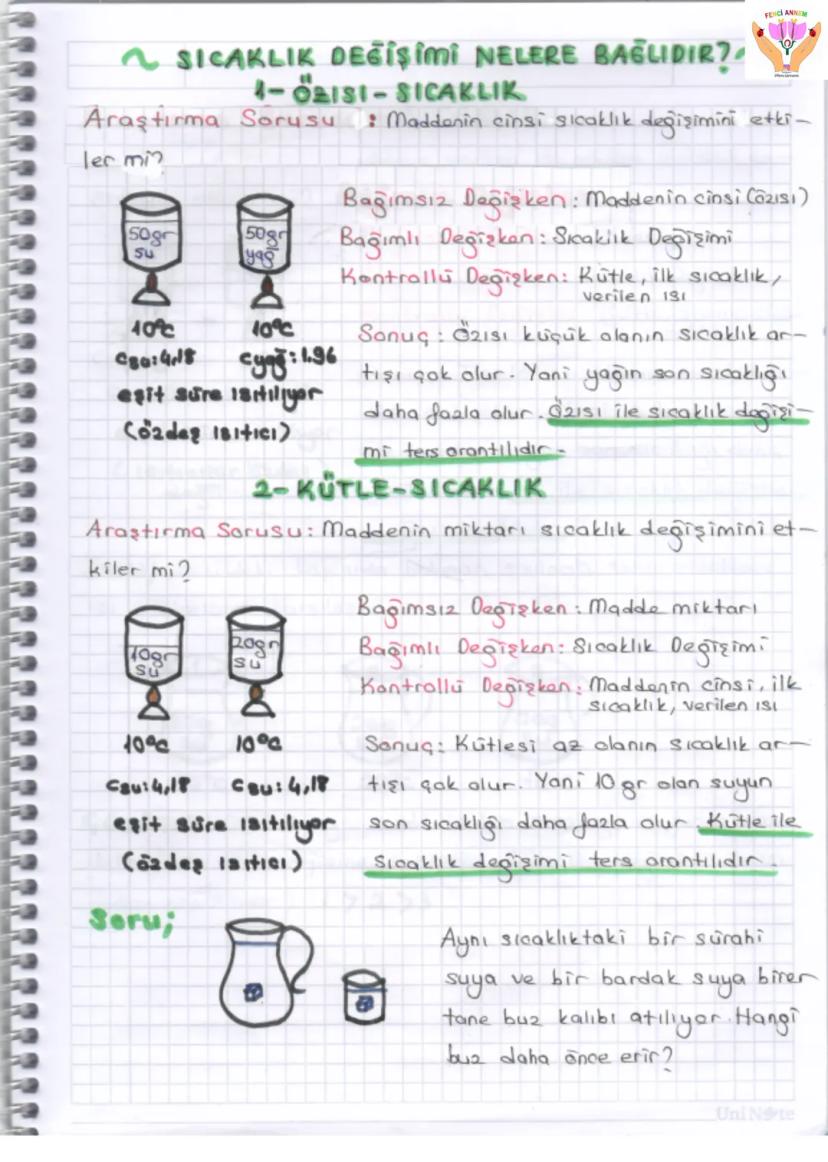 FENCİ ANNEM
~ SICAKLIK DEĞİŞİMİ NELERE BAĞLIDIR? ~
1- ÖZISI - SICAKLIK
Araştırma Sorusu : Maddenin cinsi sıcaklık değişimini etki-
ler mi?
50gr su
50gr yağ
10°C
10°C
Csu: 4,18
Cyağ: 1.96
eşit süre ısıtılıyor
(özdeş ısıtıcı)
Bağımsız Değişken : Maddenin cinsi (özısı)
Bağımlı Değişken : Sıcaklık Değişimi
Kontrollü Değişken : Kütle, ilk sıcaklık,
verilen ısı
Sonuç : Özısı küçük olanın sıcaklık ar-
tışı çok olur. Yani yağın son sıcaklığı
daha fazla olur. Özısı ile sıcaklık değişi-
mi ters orantılıdır.
2- KÜTLE-SICAKLIK
Araştırma Sorusu : Maddenin miktarı sıcaklık değişimini et-
kiler mi?
10gr su
20gr su
10°C
10°C
Csu: 4,18
Csu: 4,18
eşit süre ısıtılıyor
(özdeş ısıtıcı)
Bağımsız Değişken : Madde miktarı
Bağımlı Değişken : Sıcaklık Değişimi
Kontrollü Değişken : Maddenin cinsi, ilk
sıcaklık, verilen ısı
Sonuç : Kütlesi az olanın sıcaklık ar-
tışı çok olur. Yani 10 gr olan suyun
son sıcaklığı daha fazla olur. Kütle ile
sıcaklık değişimi ters orantılıdır.
Soru;
Aynı sıcaklıktaki bir sürahi
suya ve bir bardak suya birer
tane buz kalıbı atılıyor. Hangi
buz daha önce erir?
UniNote